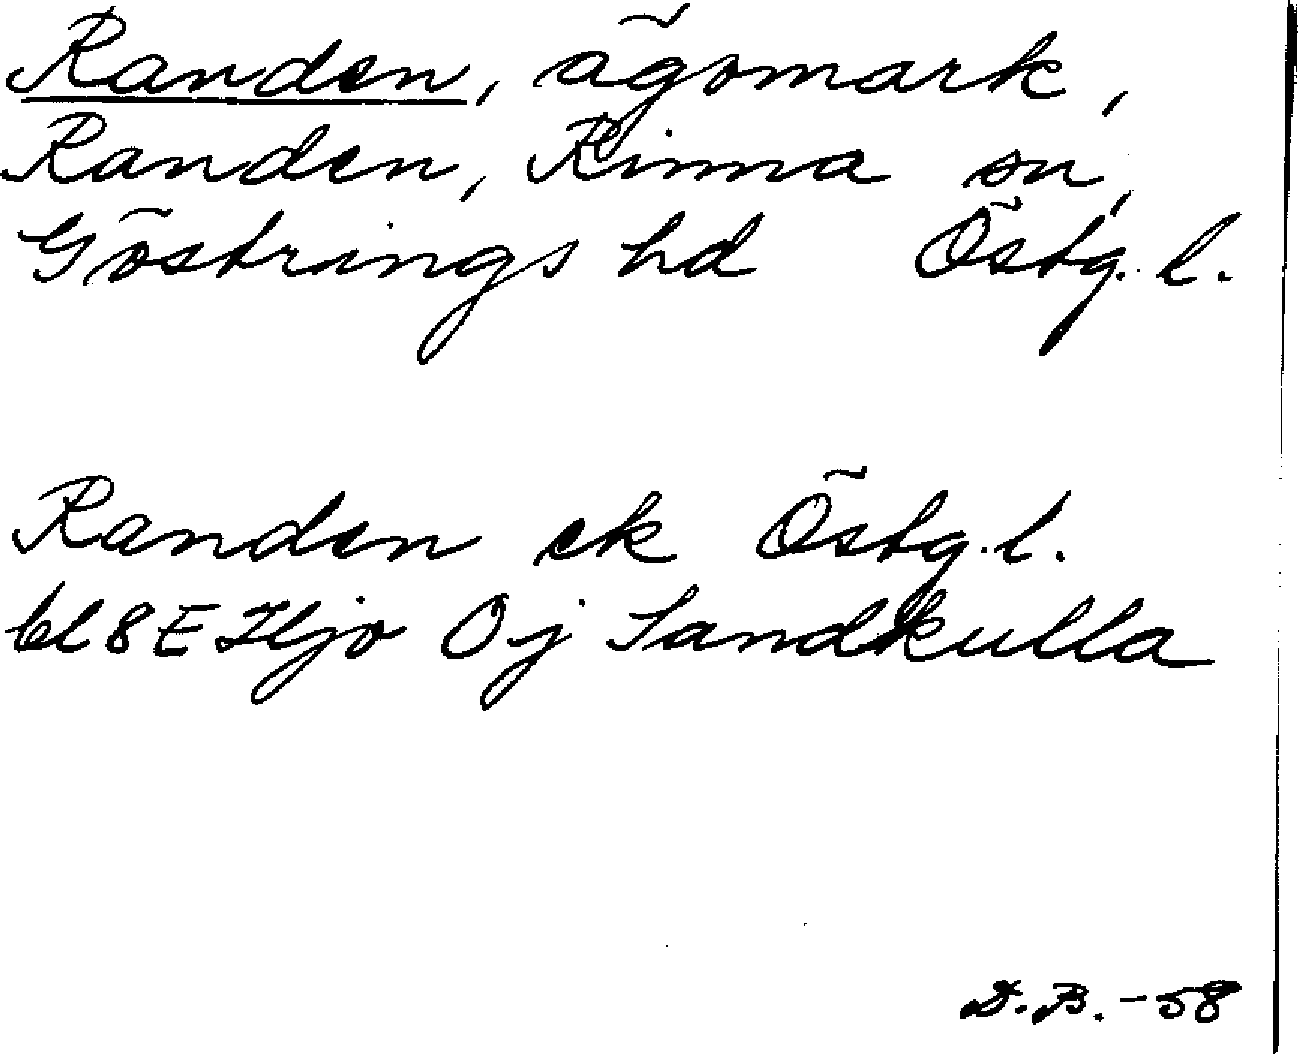 Randen, ägomark,
Randen, Rinna sn,
Göstrings hd Östg. l.
Randen ek Östg. l.
bl 8 E Hjo Oj Sandkulla
D.B. -58